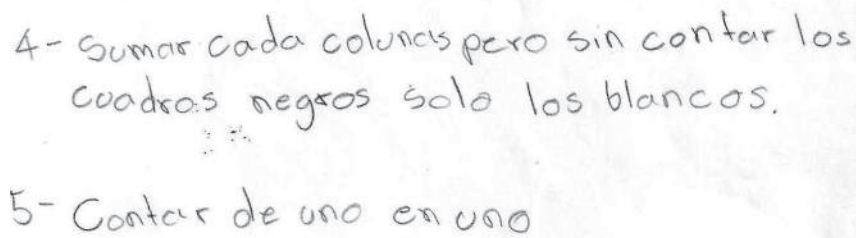 4- Sumar cada colunas pero sin contar los
cuadros negros solo los blancos.
5- Contar de uno en uno